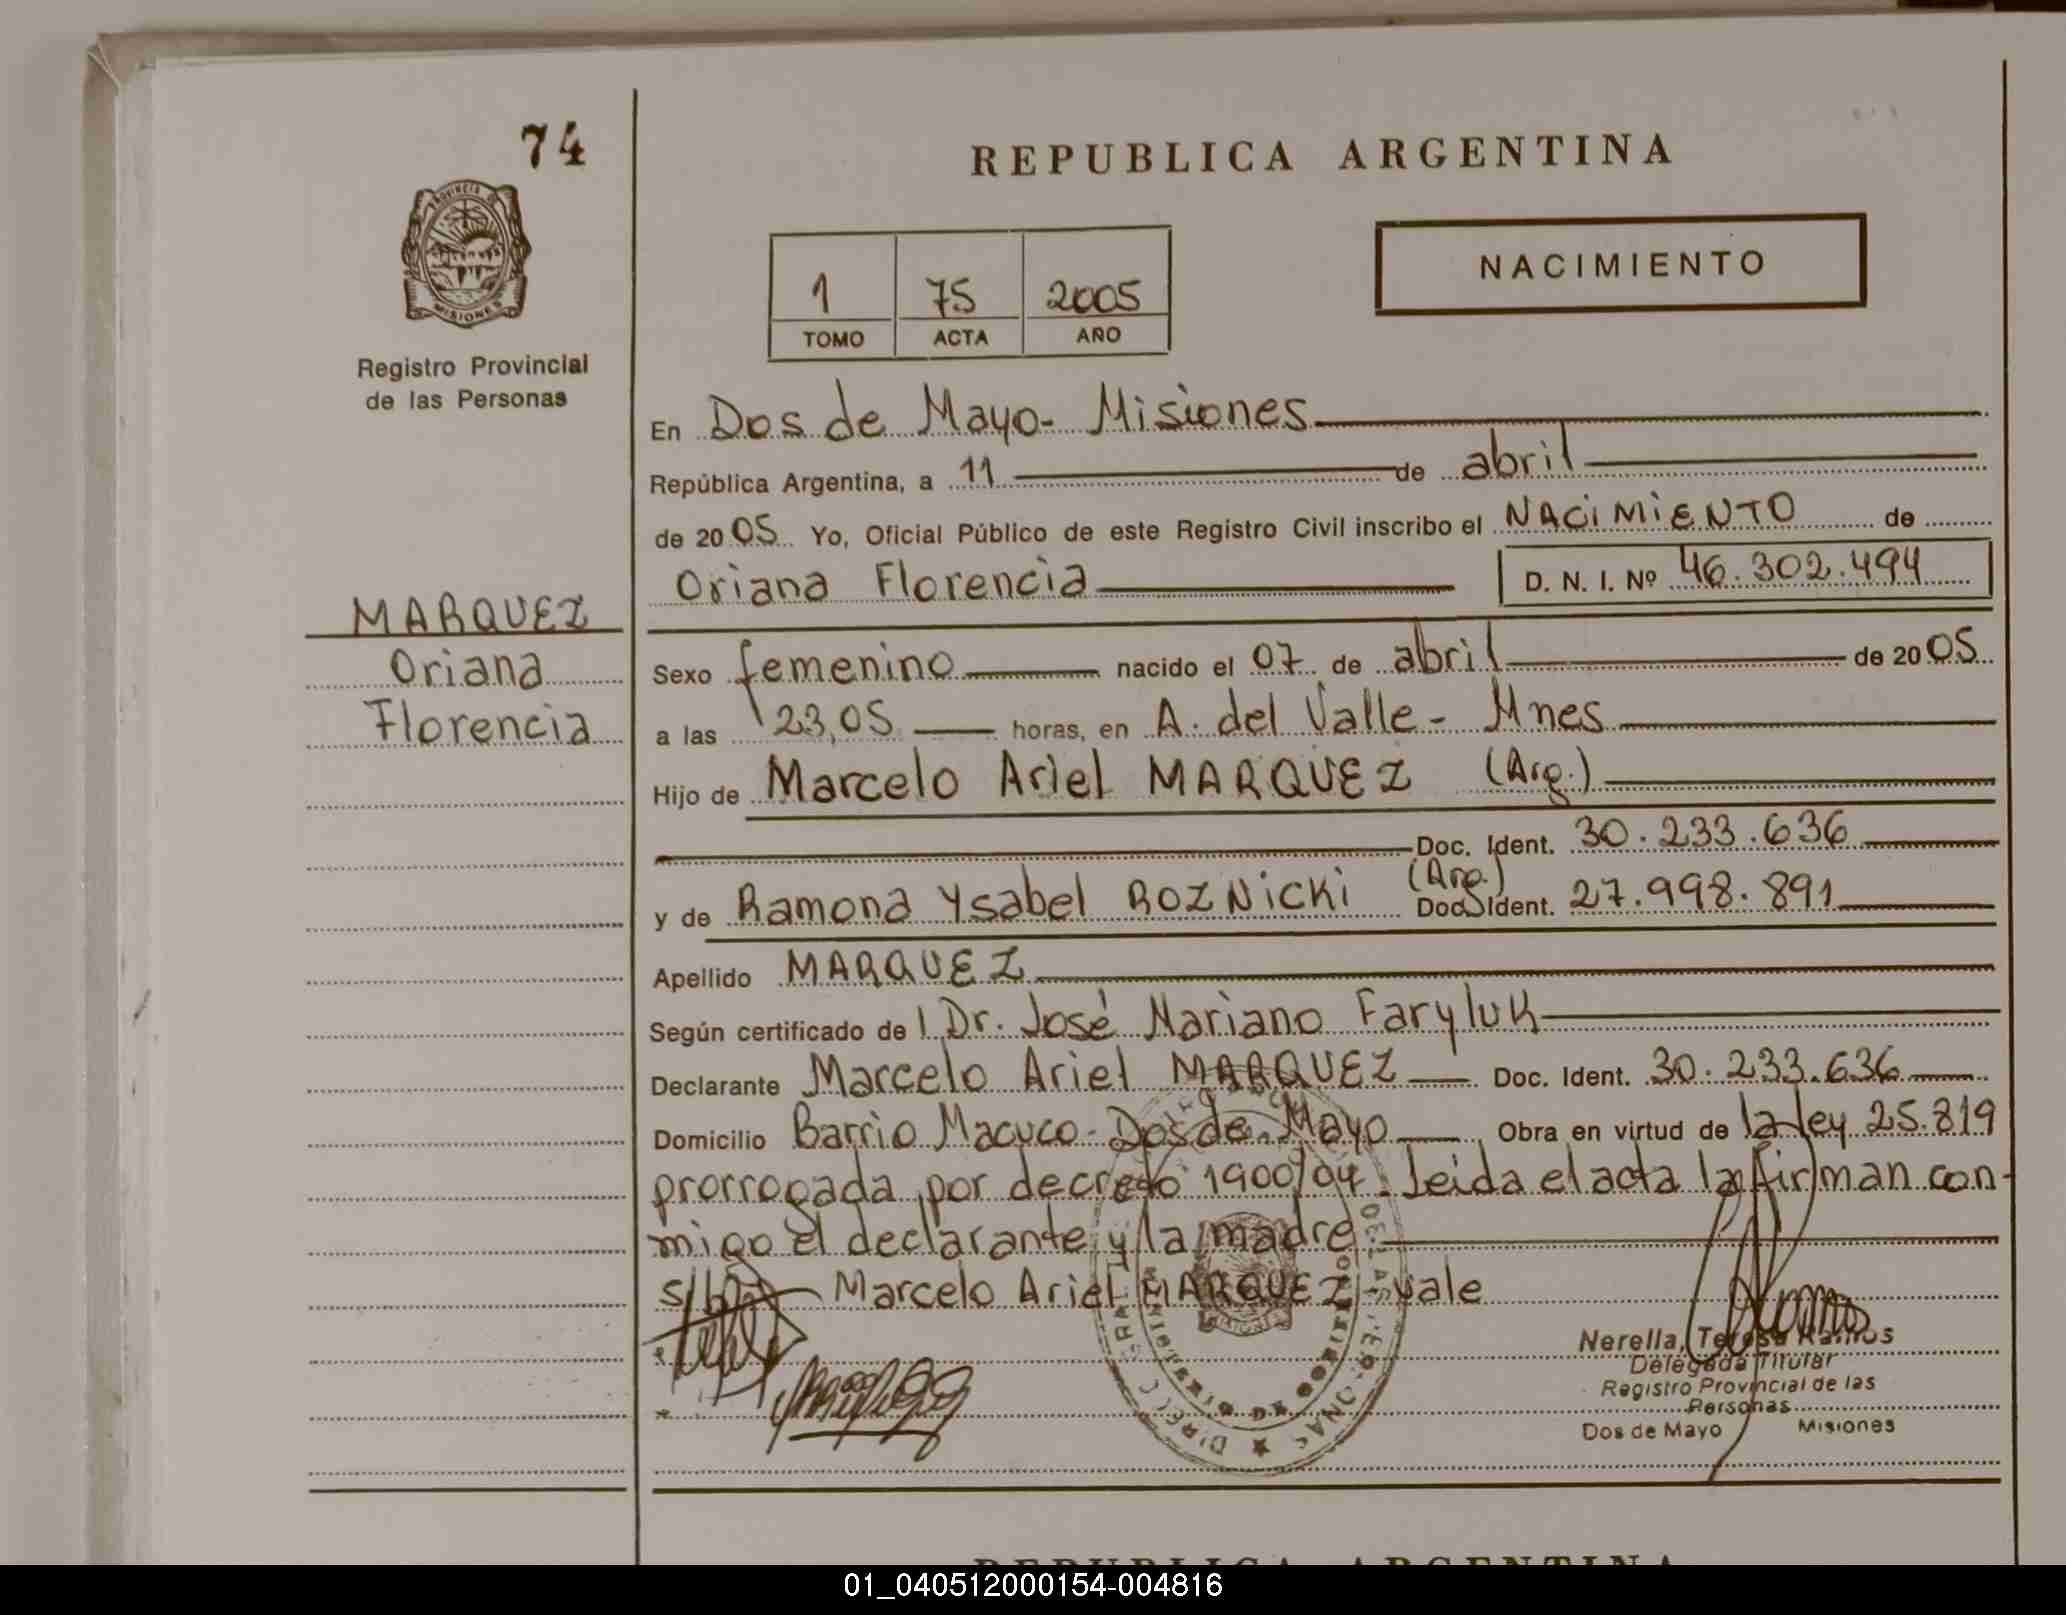 74
PROVINCIA
MISIONES
Registro Provincial
de las Personas
MARQUEZ
Oriana
Florencia
REPUBLICA ARGENTINA
1 75 2005
TOMO ACTA AÑO
NACIMIENTO
En Dos de Mayo - Misiones
República Argentina, a 11 de abril
de 2005 Yo, Oficial Público de este Registro Civil inscribo el NACIMIENTO de
Oriana Florencia D. N. I. Nº 46.302.494
Sexo femenino nacido el 07 de abril de 2005
a las 23,05 horas, en A. del Valle - Mnes
Hijo de Marcelo Ariel MARQUEZ (Arg.)
Doc. Ident. 30.233.636
(Arg.)
y de Ramona Ysabel ROZNicki Doc. Ident. 27.998.891
Apellido MARQUEZ
Según certificado de l Dr. José Mariano Faryluk
Declarante Marcelo Ariel MARQUEZ Doc. Ident. 30.233.636
Domicilio Barrio Macuco - Dos de Mayo Obra en virtud de la ley 25.819
prorrogada por decreto 1900/04. Leida el acta la firman con-
migo el declarante y la madre.
Marcelo Ariel MARQUEZ - vale
Nerella, Teresa Ramos
Delegada Titular
Registro Provincial de las
Personas
Dos de Mayo Misiones
REPUBLICA ARGENTINA
01_040512000154-004816